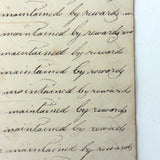 maintained by rewards
maintained by rewards
maintained by rewards
maintained by rewards
maintained by rewards
maintained by rewards
maintained by rewards
maintained by rewards